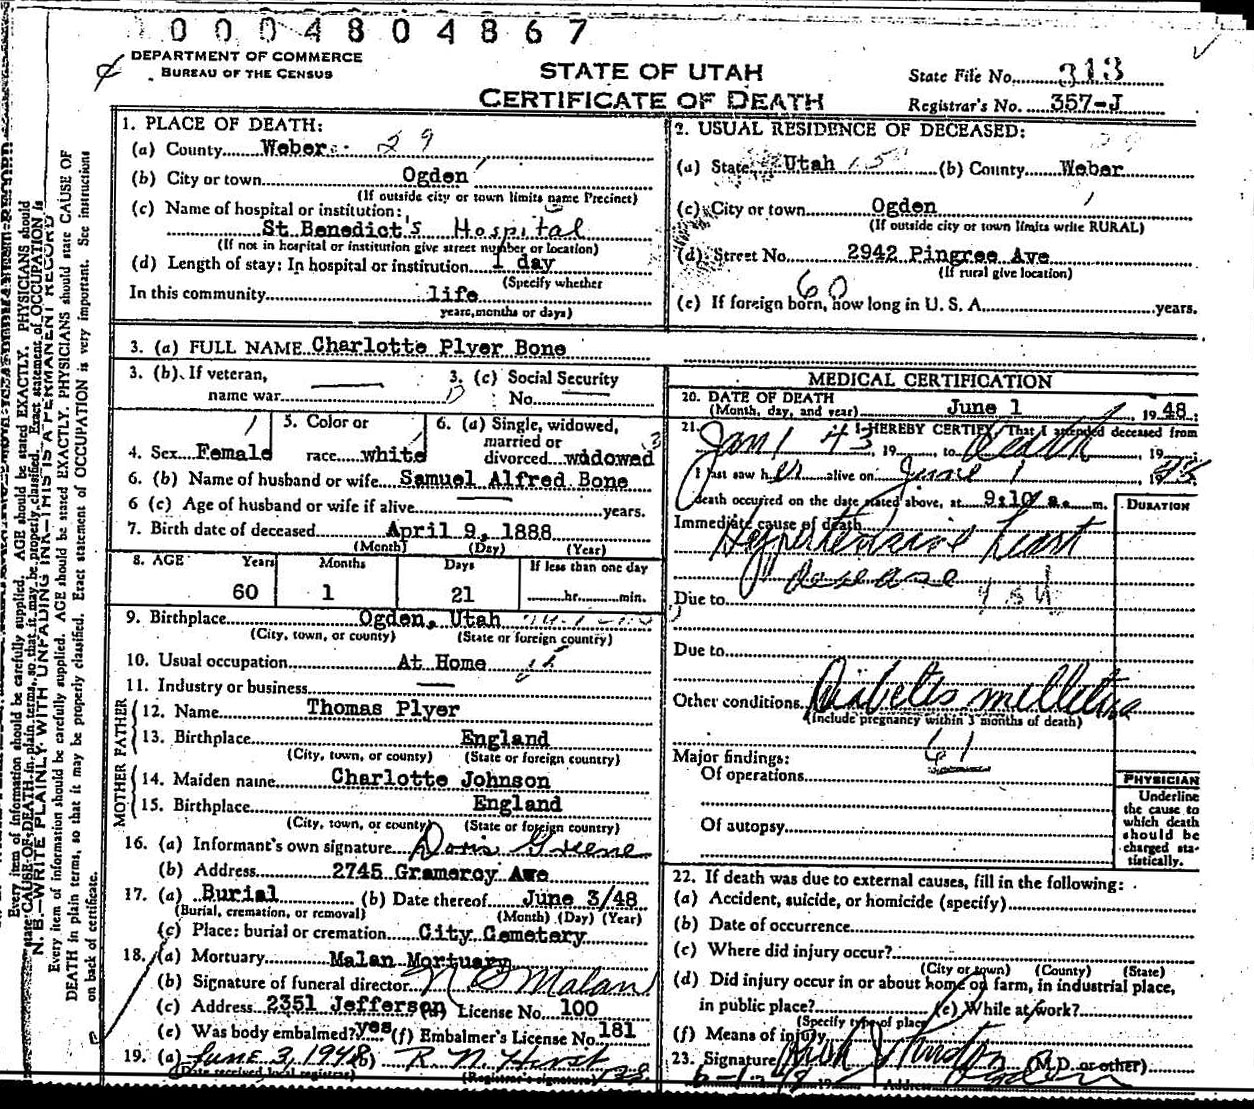 0004804867
DEPARTMENT OF COMMERCE
BUREAU OF THE CENSUS
STATE OF UTAH
CERTIFICATE OF DEATH
State File No. 313
Registrar's No. 357-J
1. PLACE OF DEATH:
(a) County Weber 29
(b) City or town Ogden
(If outside city or town limits name Precinct)
(c) Name of hospital or institution:
St. Benedict's Hospital
(If not in hospital or institution give street number or location)
(d) Length of stay: In hospital or institution 1 day
(Specify whether
In this community life
years, months or days)
2. USUAL RESIDENCE OF DECEASED:
(a) State Utah 15 (b) County Weber
(c) City or town Ogden
(If outside city or town limits write RURAL)
(d) Street No. 2942 Pingree Ave
(If rural give location)
60
(e) If foreign born, how long in U. S. A. years.
3. (a) FULL NAME Charlotte Plyer Bone
3. (b) If veteran, name war
3. (c) Social Security No.
4. Sex Female
5. Color or race white
6. (a) Single, widowed, married or divorced widowed
6. (b) Name of husband or wife Samuel Alfred Bone
6 (c) Age of husband or wife if alive years.
7. Birth date of deceased April 9, 1888
(Month) (Day) (Year)
8. AGE Years Months Days If less than one day
60 1 21 hr. min.
9. Birthplace Ogden, Utah
(City, town, or county) (State or foreign country)
10. Usual occupation At Home
11. Industry or business
FATHER
12. Name Thomas Plyer
13. Birthplace England
(City, town, or county) (State or foreign country)
MOTHER
14. Maiden name Charlotte Johnson
15. Birthplace England
(City, town, or county) (State or foreign country)
16. (a) Informant's own signature Doris Greene
(b) Address 2745 Gramercy Ave
17. (a) Burial (b) Date thereof June 3/48
(Burial, cremation, or removal) (Month) (Day) (Year)
(c) Place: burial or cremation City Cemetery
18. (a) Mortuary Malan Mortuary
(b) Signature of funeral director Malan
(c) Address 2351 Jefferson (d) License No. 100
(e) Was body embalmed? yes (f) Embalmer's License No. 181
19. (a) June 3, 1948 (b) R. N. Hirst
(Date received local registrar) (Registrar's signature)
MEDICAL CERTIFICATION
20. DATE OF DEATH
(Month, day, and year) June 1, 1948;
21. I HEREBY CERTIFY, That I attended deceased from
Jan 1 43, 19 to Death, 19
I last saw her alive on June 1 19 48
death occurred on the date stated above, at 9:10 a. m.
DURATION
Immediate cause of death
Hypertensive heart
disease
Due to
Due to
Other conditions Diabetis mellitus
(Include pregnancy within 3 months of death)
61
Major findings:
Of operations
Of autopsy
PHYSICIAN
Underline
the cause to
which death
should be
charged sta-
tistically.
22. If death was due to external causes, fill in the following:
(a) Accident, suicide, or homicide (specify)
(b) Date of occurrence
(c) Where did injury occur?
(City or town) (County) (State)
(d) Did injury occur in or about home on farm, in industrial place,
in public place? (e) While at work?
(Specify type of place)
(f) Means of injury
23. Signature (M.D. or other)
6-1-48 19 Address Ogden
N. B.—WRITE PLAINLY WITH UNFADING INK—THIS IS A PERMANENT RECORD
Every item of information should be carefully supplied. AGE should be stated EXACTLY. PHYSICIANS should state CAUSE OF
DEATH in plain terms, so that it may be properly classified. Exact statement of OCCUPATION is very important. See instructions
on back of certificate.